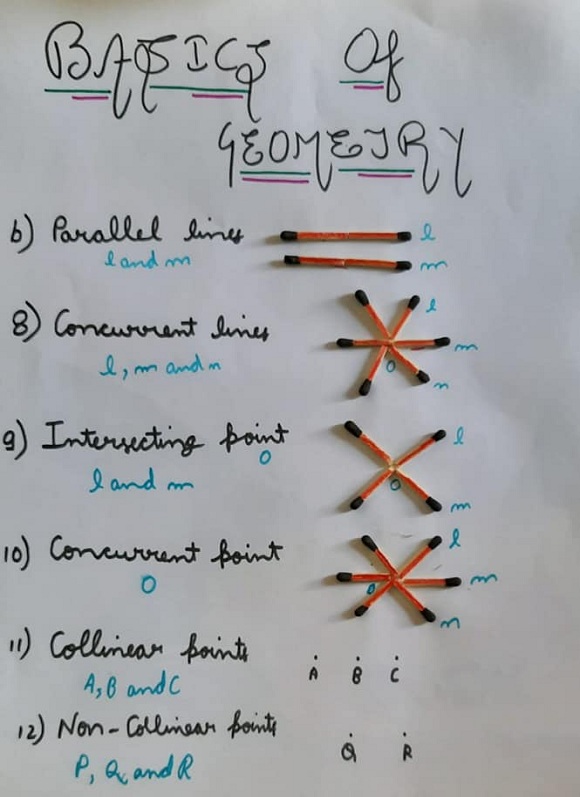 BASICS Of
GEOMETRY
6) Parallel lines
l and m
l
m
8) Concurrent lines
l, m and n
l
m
n
O
9) Intersecting point
O
l and m
l
m
O
10) Concurrent point
O
l
m
n
O
11) Collinear points
A, B and C
A B C
12) Non-Collinear points
P, Q, and R
Q R